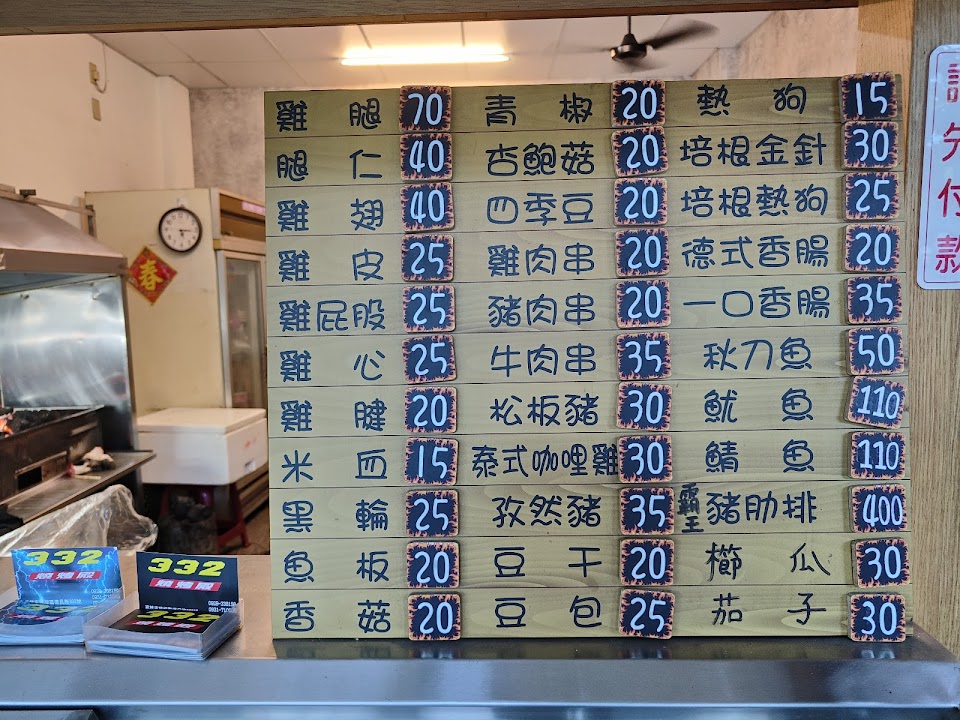 雞腿 70 青椒 20 熱狗 15
腿仁 40 杏鮑菇 20 培根金針 30
雞翅 40 四季豆 20 培根熱狗 25
雞皮 25 雞肉串 20 德式香腸 20
雞屁股 25 豬肉串 20 一口香腸 35
雞心 25 牛肉串 35 秋刀魚 50
雞腱 20 松板豬 30 魷魚 110
米血 15 泰式咖哩雞 30 鯖魚 110
黑輪 25 孜然豬 35 霸王豬肋排 400
魚板 20 豆干 20 櫛瓜 30
香菇 20 豆包 25 茄子 30
先付款
春
332
332
332